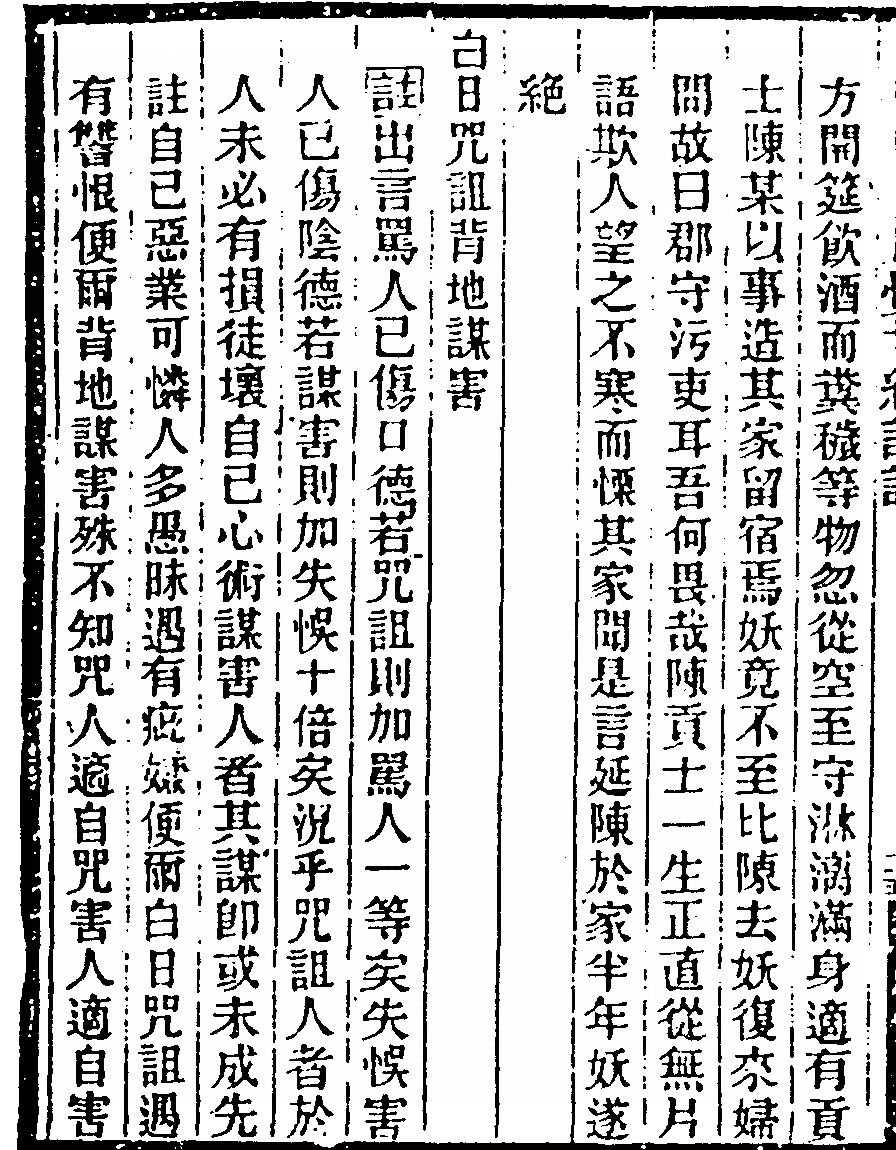 方開筵飲酒而糞穢等物忽從空至守淋漓滿身適有貢
士陳某以事造其家留宿焉妖竟不至比陳去妖復來婦
問故曰郡守污吏耳吾何畏哉陳貢士一生正直從無片
語欺人望之不寒而慄其家聞是言延陳於家半年妖遂
絶
白日咒詛背地謀害
註出言罵人已傷口德若咒詛則加罵人一等矣失悞害
人已傷陰德若謀害則加失悞十倍矣況乎咒詛人者於
人未必有損徒壞自己心術謀害人者其謀卽或未成先
註自己惡業可憐人多愚昧遇有疵嫌便爾白日咒詛遇
有讐恨便爾背地謀害殊不知咒人適自咒害人適自害